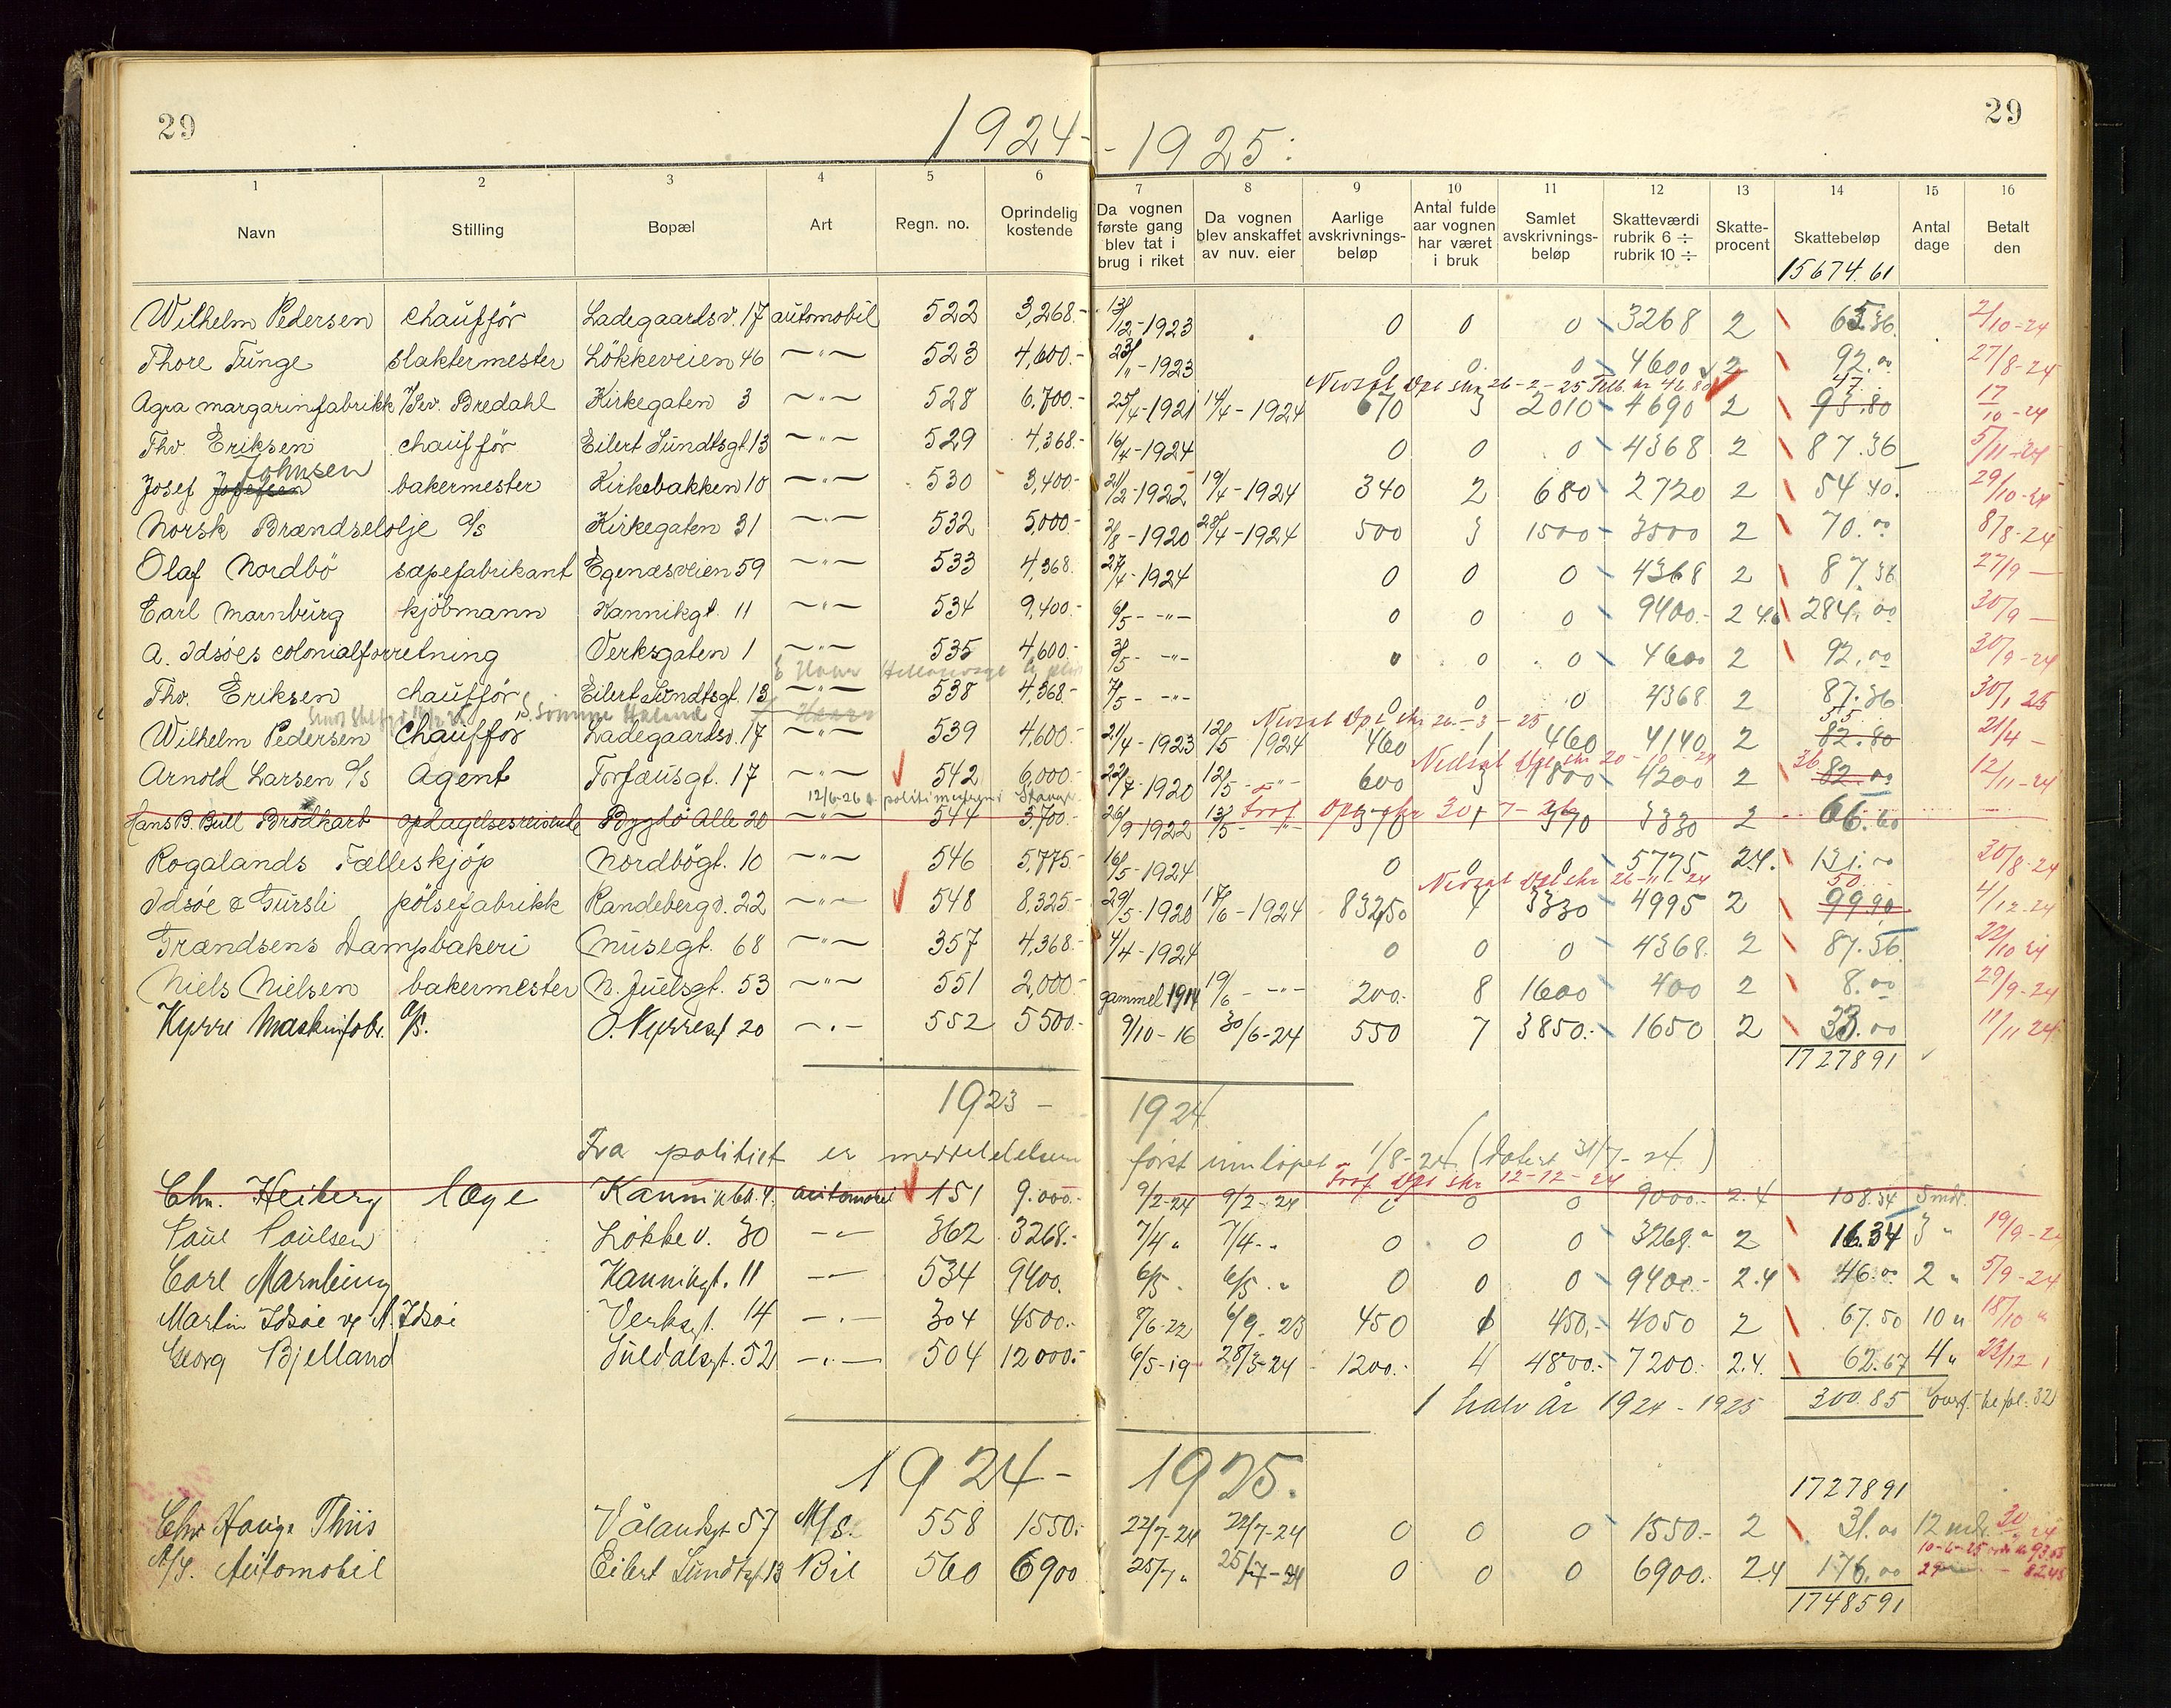 29
29
1924 - - 1925:
1 2 3 4 5 6 7 8 9 10 11 12 13 14 15 16
Navn Stilling Bopæl Art Regn. no. Oprindelig kostende Da vognen første gang blev tat i brug i riket Da vognen blev anskaffet av nuv. eier Aarlige avskrivnings-beløp Antal fulde aar vognen har været i bruk Samlet avskrivnings-beløp Skatteværdi rubrik 6 ÷ rubrik 10 ÷ Skatte-procent Skattebeløp Antal dage Betalt den
15674.61
Wilhelm Pedersen chaufför Ladegaardsv. 17 automobil 522 3,268.- 13/12-1923 0 0 0 3268 2 65.36 2/10-24
Thore Tunge slaktermester Lökkeveien 46 -"- 523 4,600.- 23/11-1923 0 0 0 4600 2 92.00 27/8-24
Nedsat Opl skr 26-2-25 47.
Agra margarinfabrikk v/ Bredahl Kirkegaten 3 -"- 528 6.700.- 25/4-1921 14/4-1924 670 3 2010 4690 2 93.80 17/10-24
Thv. Eriksen chaufför Eilert Sundtsgt. 13 -"- 529 4,368.- 16/4-1924 0 0 0 4368 2 87.36 5/11-24
Johnsen
Josef Josefsen bakermester Kirkebakken 10 -"- 530 3,400.- 21/2-1922 19/4-1924 340 2 680 2720 2 54.40. 29/10-24
Norsk Brændselolje a/s Kirkegaten 31 -"- 532 5,000.- 2/8-1920 28/4-1924 500 3 1500 3500 2 70.00 8/8-24
Olaf Nordbö sæpefabrikant Egenæsveien 59 -"- 533 4,368. 27/4-1924 0 0 0 4368 2 87.36 27/9 —
Carl Marnburg kjöbmann Kannikgt. 11 -"- 534 9,400.- 6/5- -"- 0 0 0 9400.- 2.4 284.00 30/9 —
A. Idsöes colonialforretning Verksgaten 1 -"- 535 4,600.- 3/5- -"- 0 0 0 4600 2 92.00 30/9-24
Thv. Eriksen chaufför Eilert Sundtsgt. 13 -"- 538 4,368- 7/5- -"- 0 0 0 4368 2 87.36 30/1 25
Nedsat Opl skr 26-3-25
Wilhelm Pedersen Chaufför Ladegaardsv. 17 -"- 539 4,600.- 21/4-1923 12/5 1924 460 1 460 4140 2 82.80 21/4 -
Nedsat Opl skr 20-10-24 36
Arnold Larsen a/s Agent Torfæusgt. 17 -"- 542 6,000.- 22/7-1920 12/5- -"- 600 3 1800 4200 2 82.00 12/11-24
12/6-26
Hans B. Bull Brodkorb opdagelsesreisende Bygdö Alle 20 -"- 544 3,700.- 26/9-1922 13/5- -"- 370 1 370 3330 2 66.60
Rogalands Fælleskjöp Nordbögt. 10 -"- 546 5,775- 16/5-1924 0 0 0 5775 2.4. 131.00 30/8-24
Nedsat Opl skr 26-11-24 50
Idsöe & Gursli pölsefabrikk Randebergv. 22 -"- 548 8,325- 29/5-1920 17/6-1924 832,50 4 3330 4995 2 99.90 4/12-24
Trændsens Dampbakeri Musegt. 68 -"- 357 4,368- 4/4-1924 0 0 0 4368. 2 87.36 22/10 24
Niels Nielsen bakermester N. Juelsgt. 53 -"- 551 2,000.- gammel 1914 19/6- -"- 200.- 8 1600 400 2 8.00 29/9-24
Kyrre Maskinfabr. a/s. O. Kyrresgt 20 -"- 552 5500.- 9/10-16 30/6-24 550 7 3850.- 1650 2 33.00 11/11 24
1727891
1923 - 1924
Fra politiet er meddelelsen först innlöpet 1/8-24 (Datert 31/7-24.)
Frof. Opl skr 12-12-24
Chr. Heiberg læge Kannikbk. 4. automobil 151 9.000.- 9/2-24 9/2-24 0 0 0 9000.- 2.4 108.34 5 mdr.
Paul Paulsen Lökke v. 30 -"- 362 3268.- 7/4 " 7/4-" 0 0 0 3268." 2 16.34 3 " 19/9-24
Carl Marnburg Kannikgt. 11 -"- 534 9400. 6/5 " 6/5 " 0 0 0 9400.- 2.4 46.00 2 " 5/9-24
Martin Idsöe og A. Idsöe Verksgt. 14 -"- 304 4500.- 8/6-22 6/9-23 450 1 450,- 4050 2 67.50 10 " 18/10 "
Georg Bjelland Suldalsgt. 52 -"- 504 12000.- 6/5-19 28/3-24 1200.- 4 4800.- 7200.- 2.4. 62.67 4 " 23/12
1 halv år 1924-1925 300.85 Overf. til fol. 32
1924 - 1925.
1727891
Chr Hauge Thiis Vålandsgt 57 M/S. 558 1550.- 22/7-24 22/7-24 0 0 0 1550.- 2 31.00 12 mdr. 30 24
10-6-25 93.55
A/S. Automobil Eilert Sundtsgt. 13 Bil 560 6900 25/7 " 25/7-24 0 0 0 6900.- 2.4 176.00 29 82.45
1748591